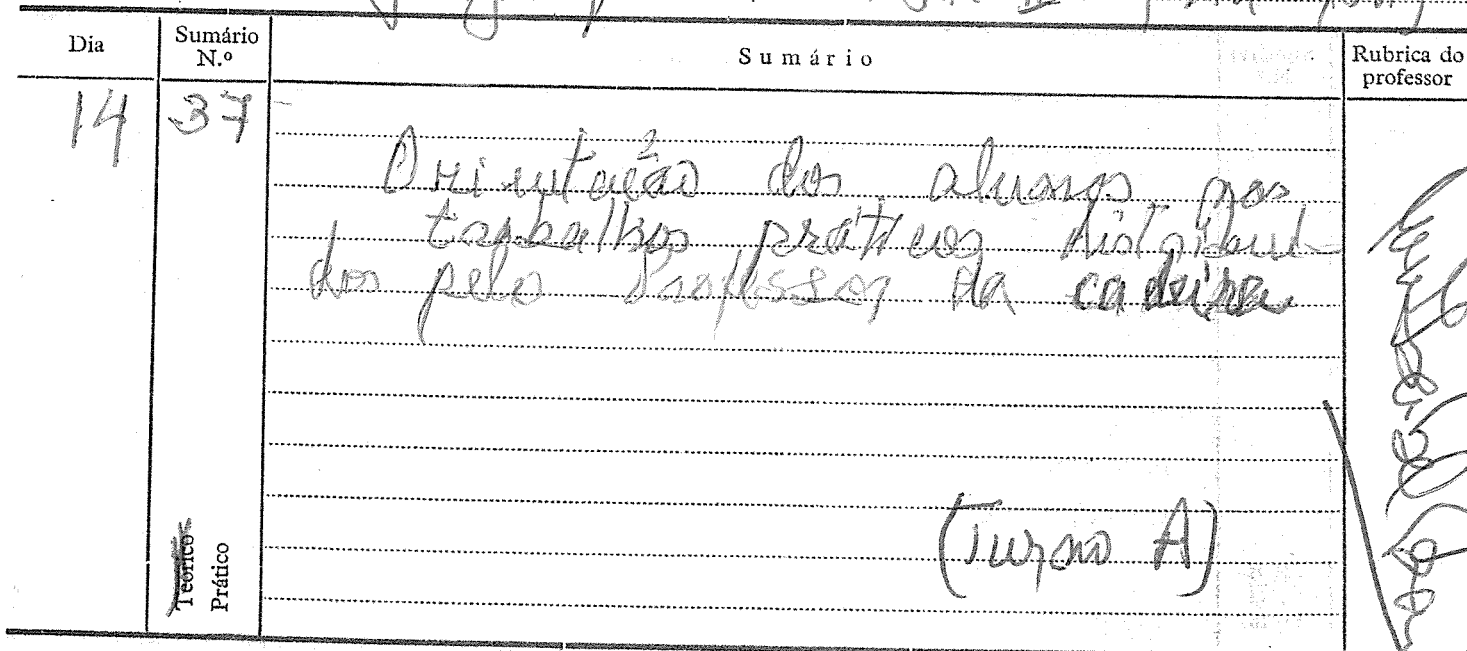 Dia
Sumário N.º
Sumário
Rubrica do professor
14
37
Orientação dos alunos nos
trabalhos práticos distribuí-
dos pelo Professor da cadeira
(Turno A)
Teórico
Prático